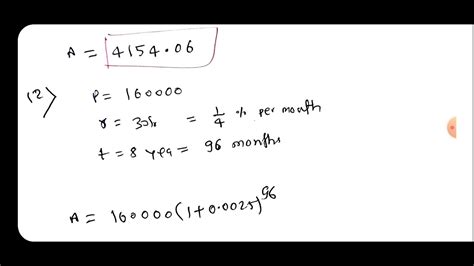 A = 4154.06
(2) P = 160000
r = 3% = 1/4 % per month
t = 8 yea = 96 months
A = 160000(1+0.0025)^96